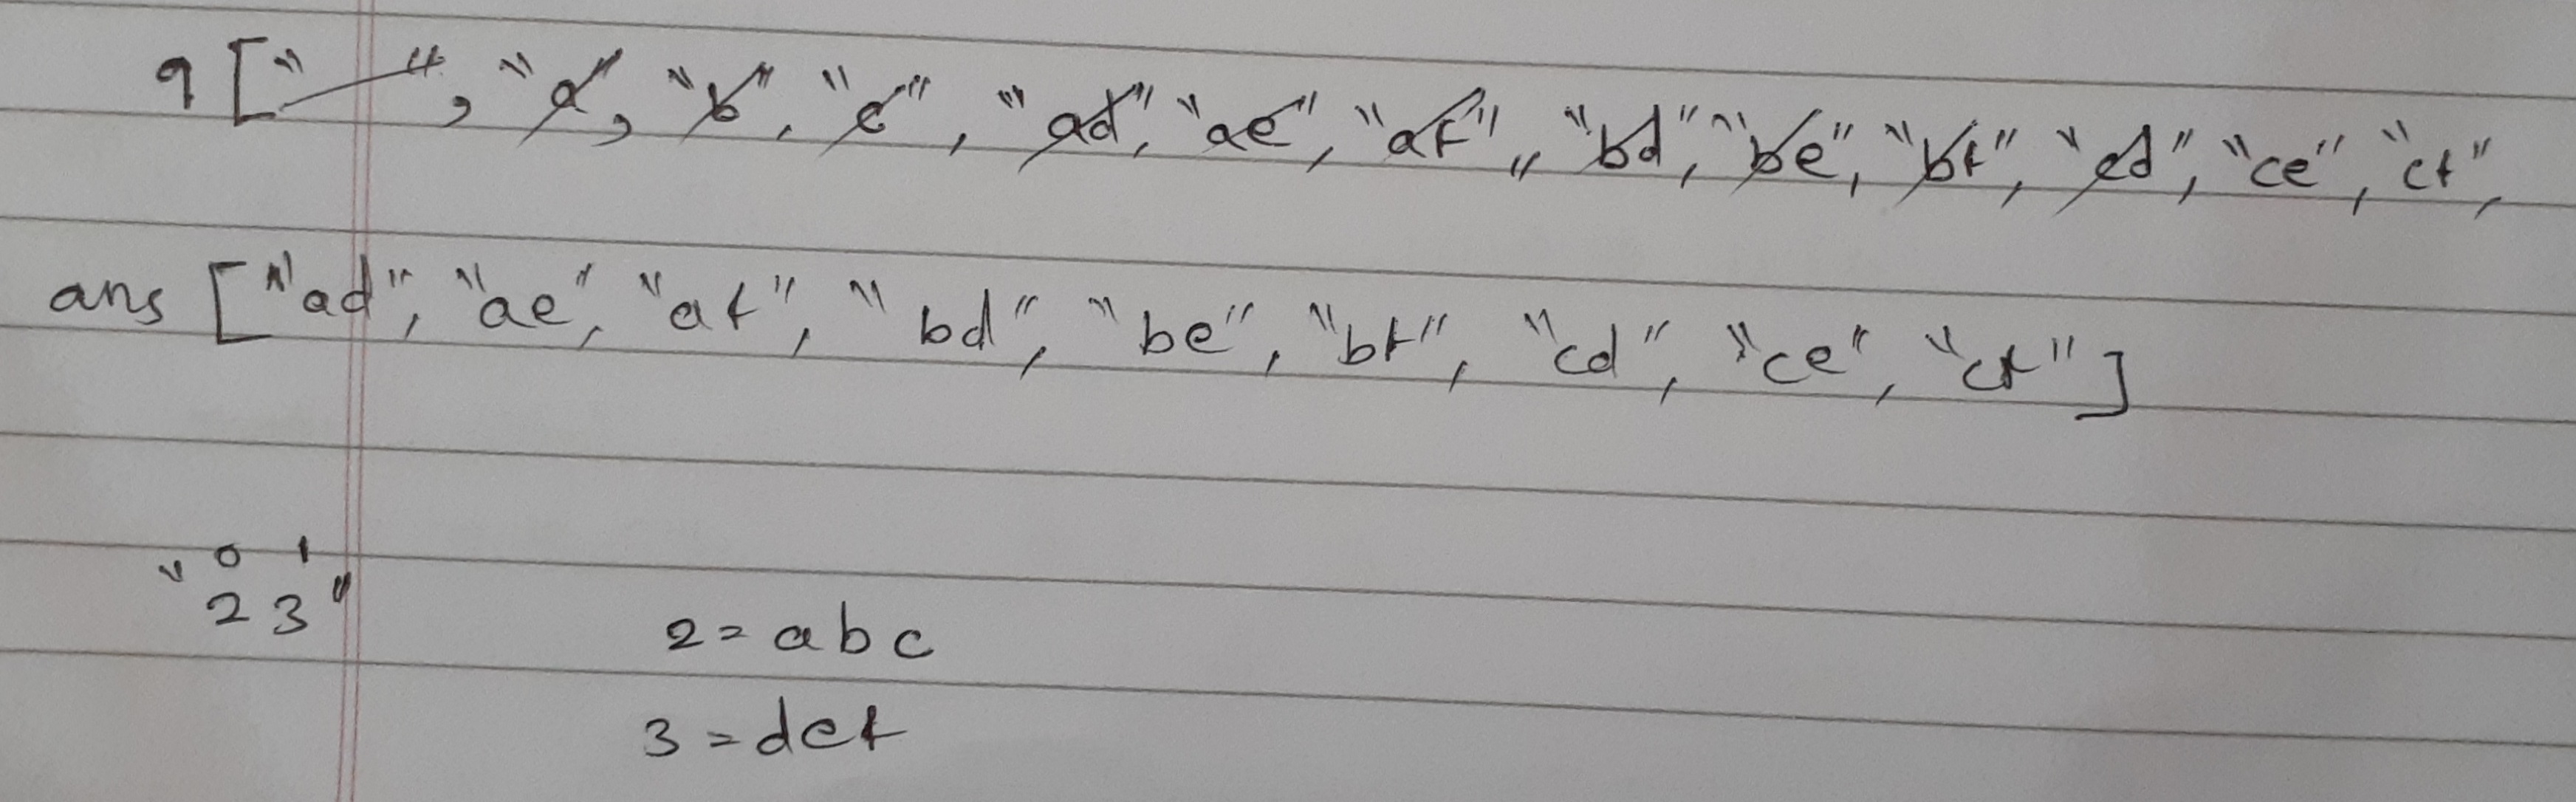 q ["   ", "a", "b", "c", "ad", "ae", "af",, "bd", "be", "bf", "cd", "ce", "cf",
ans ["ad", "ae", "af", "bd", "be", "bf", "cd", "ce", "cf"]
0 1
"23"
2 = abc
3 = def